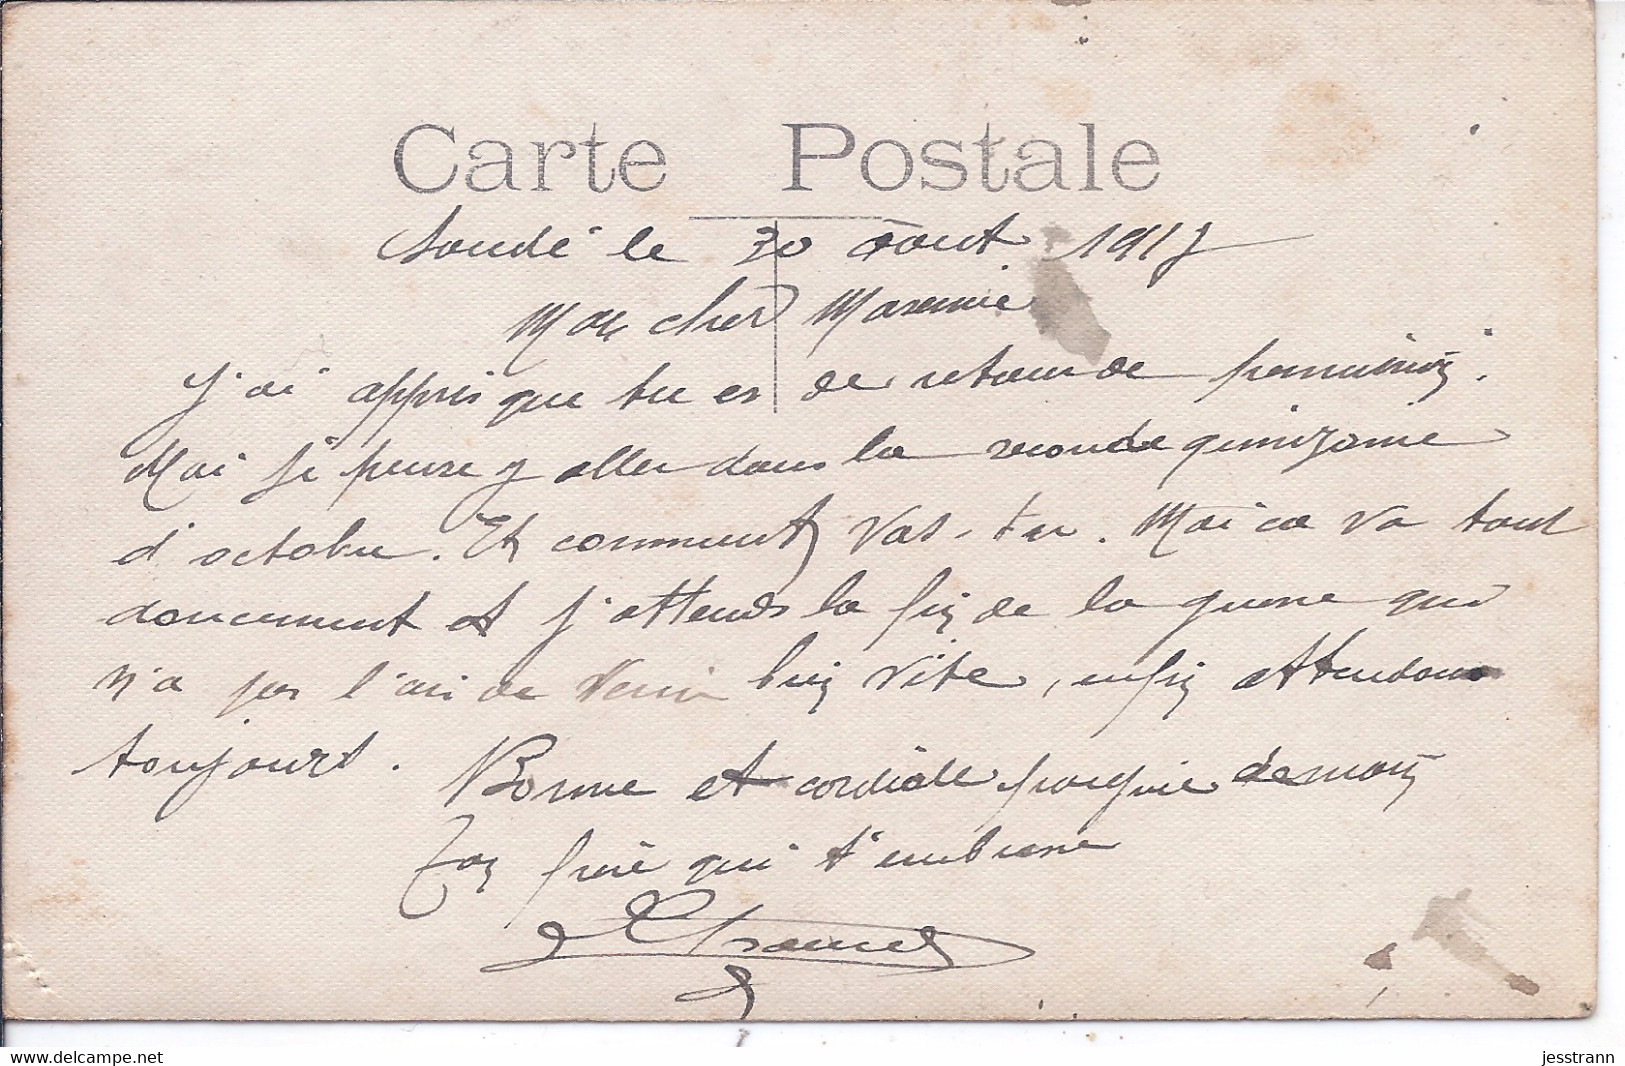 Carte Postale
Soudé le 30 Aout 1917
Mon cher Maxime
J'ai appris que tu es de retour de permission.
Moi je pense y aller dans la seconde quinzaine
d'octobre. Et comment vas-tu. Moi ca va tout
doucement et j'attends la fin de la guerre qui
n'a pas l'air de venir bien vite, enfin attendons
toujours.
Bonne et cordiale poignée de main
Ton frère qui t'embrasse
delcampe.net
jesstrann